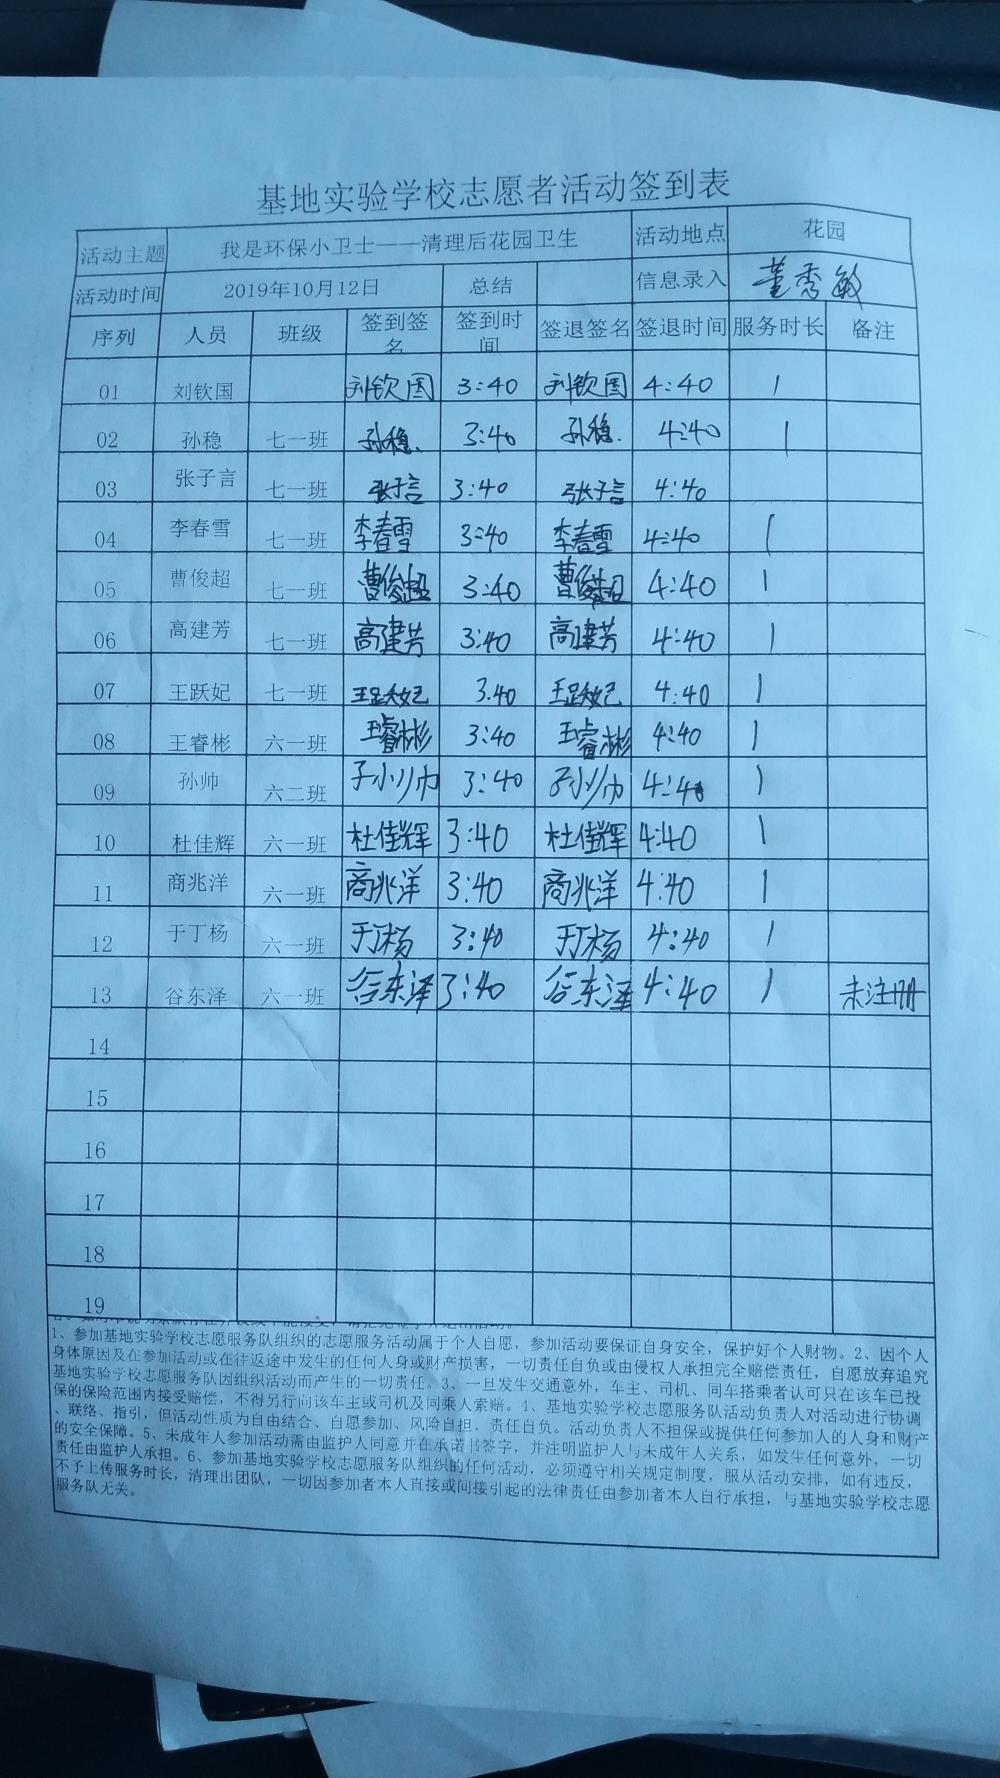 基地实验学校志愿者活动签到表
活动主题 我是环保小卫士——清理后花园卫生 活动地点 花园
活动时间 2019年10月12日 总结 信息录入 董秀敏
序列 人员 班级 签到签名 签到时间 签退签名 签退时间 服务时长 备注
01 刘钦国 刘钦国 3:40 刘钦国 4:40 1
02 孙稳 七一班 孙稳. 3:40 孙稳. 4:40 1
03 张子言 七一班 张子言 3:40 张子言 4:40
04 李春雪 七一班 李春雪 3:40 李春雪 4:40 1
05 曹俊超 七一班 曹俊超 3:40 曹俊超 4:40 1
06 高建芳 七一班 高建芳 3:40 高建芳 4:40 1
07 王跃妃 七一班 王跃妃 3:40 王跃妃 4:40 1
08 王睿彬 六一班 王睿彬 3:40 王睿彬 4:40 1
09 孙帅 六二班 孙帅 3:40 孙帅 4:40 1
10 杜佳辉 六一班 杜佳辉 3:40 杜佳辉 4:40 1
11 商兆洋 六一班 商兆洋 3:40 商兆洋 4:40 1
12 于丁杨 六一班 于丁杨 3:40 于丁杨 4:40 1
13 谷东泽 六一班 谷东泽 3:40 谷东泽 4:40 1 未注册
14
15
16
17
18
19
1、参加基地实验学校志愿服务队组织的志愿服务活动属于个人自愿，参加活动要保证自身安全，保护好个人财物。2、因个人
身体原因及在参加活动或在往返途中发生的任何人身或财产损害，一切责任自负或由侵权人承担完全赔偿责任，自愿放弃追究
基地实验学校志愿服务队因组织活动而产生的一切责任。3、一旦发生交通意外，车主、司机、同车搭乘者认可只在该车已投
保的保险范围内接受赔偿，不得另行向该车主或司机及同乘人索赔。4、基地实验学校志愿服务队活动负责人对活动进行协调
、联络、指引，但活动性质为自由结合、自愿参加、风险自担、责任自负。活动负责人不担保或提供任何参加人的人身和财产
的安全保障。5、未成年人参加活动需由监护人同意并在承诺书签字，并注明监护人与未成年人关系，如发生任何意外，一切
责任由监护人承担。6、参加基地实验学校志愿服务队组织的任何活动，必须遵守相关规定制度，服从活动安排，如有违反，
不予上传服务时长，清理出团队，一切因参加者本人直接或间接引起的法律责任由参加者本人自行承担，与基地实验学校志愿
服务队无关。